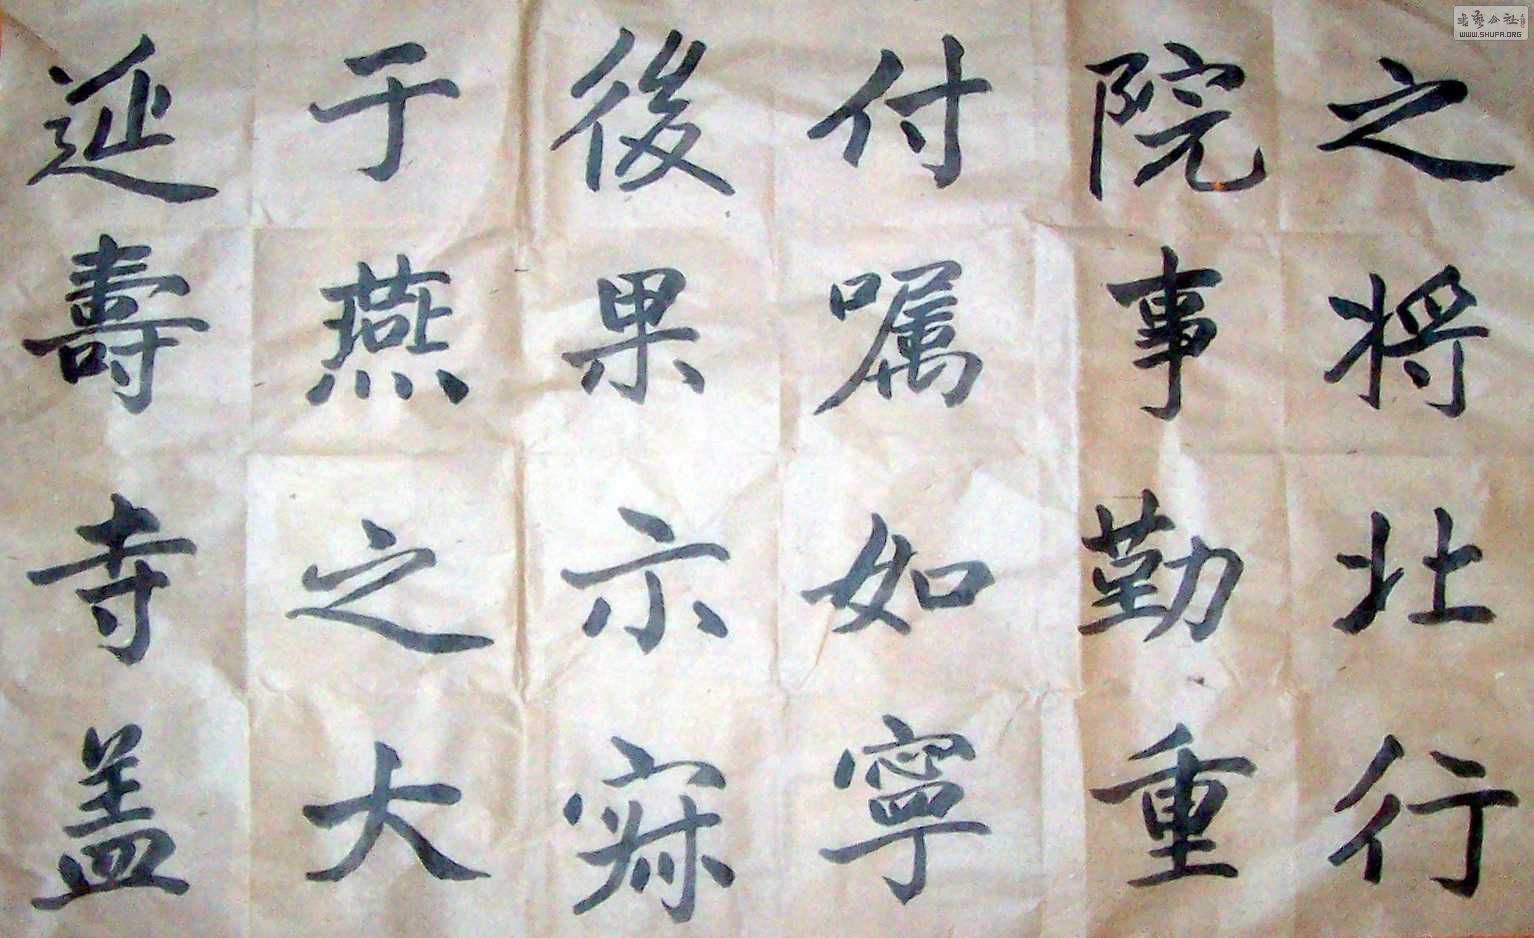 之将北行
院事勤重
付嘱如寧
後果示寂
于燕之大
延壽寺盖
WWW.SHUFA.ORG